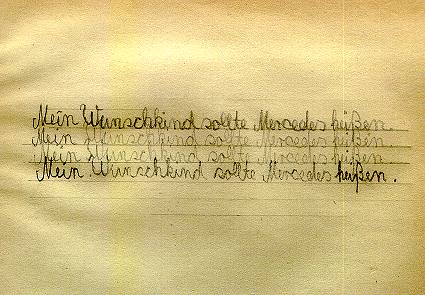 Mein Wunschkind sollte Mercedes heißen.
Mein Wunschkind sollte Mercedes heißen
Mein Wunschkind sollte Mercedes heißen
Mein Wunschkind sollte Mercedes heißen.